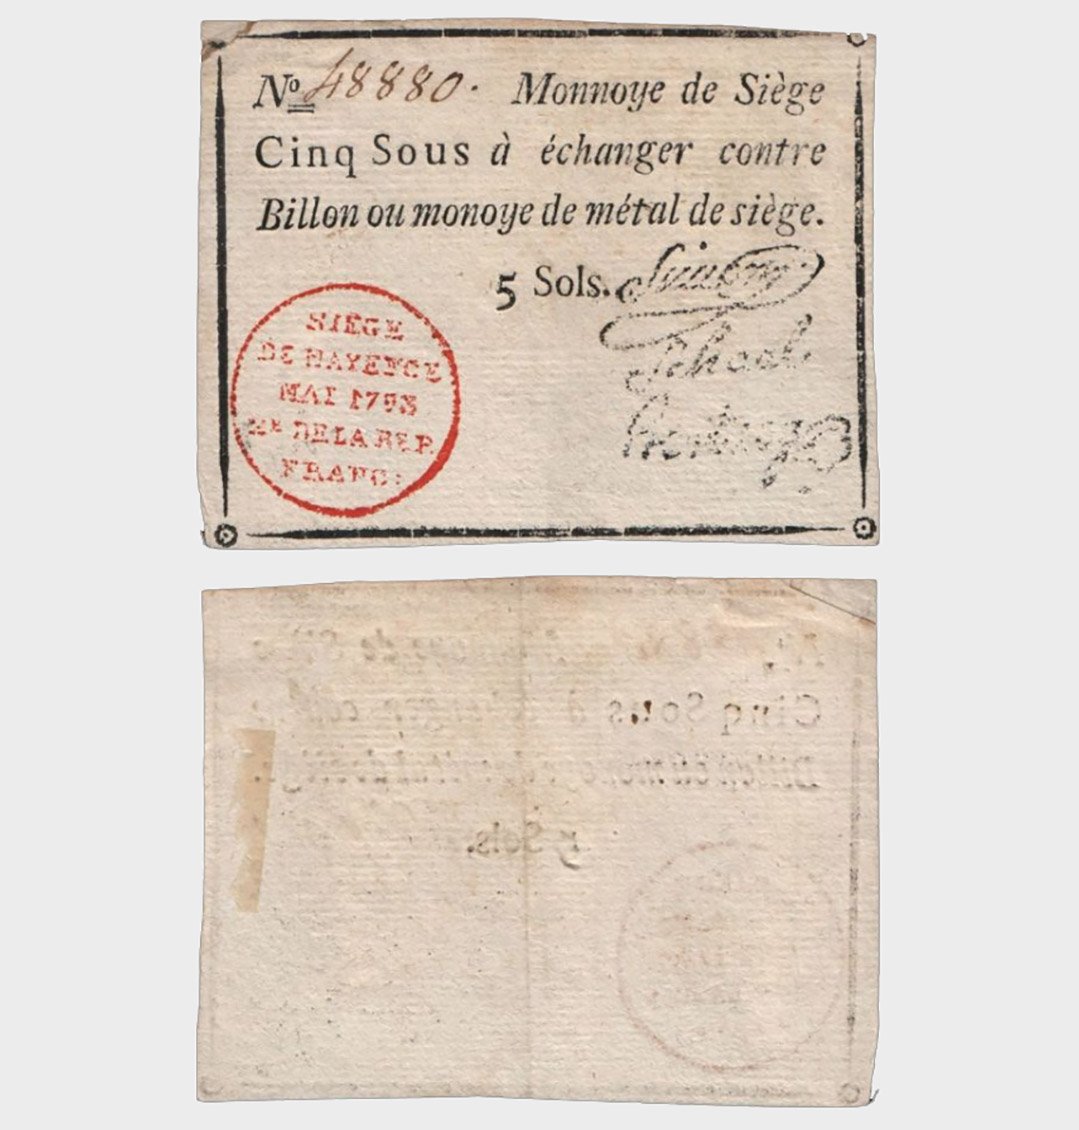 No 48880. Monnoye de Siège
Cinq Sous à échanger contre
Billon ou monoye de métal de siège.
5 Sols.
SIÈGE
DE MAYENCE
MAI 1793
2E DE LA REP
FRANC:
Cinq Sous à
5 Sols.